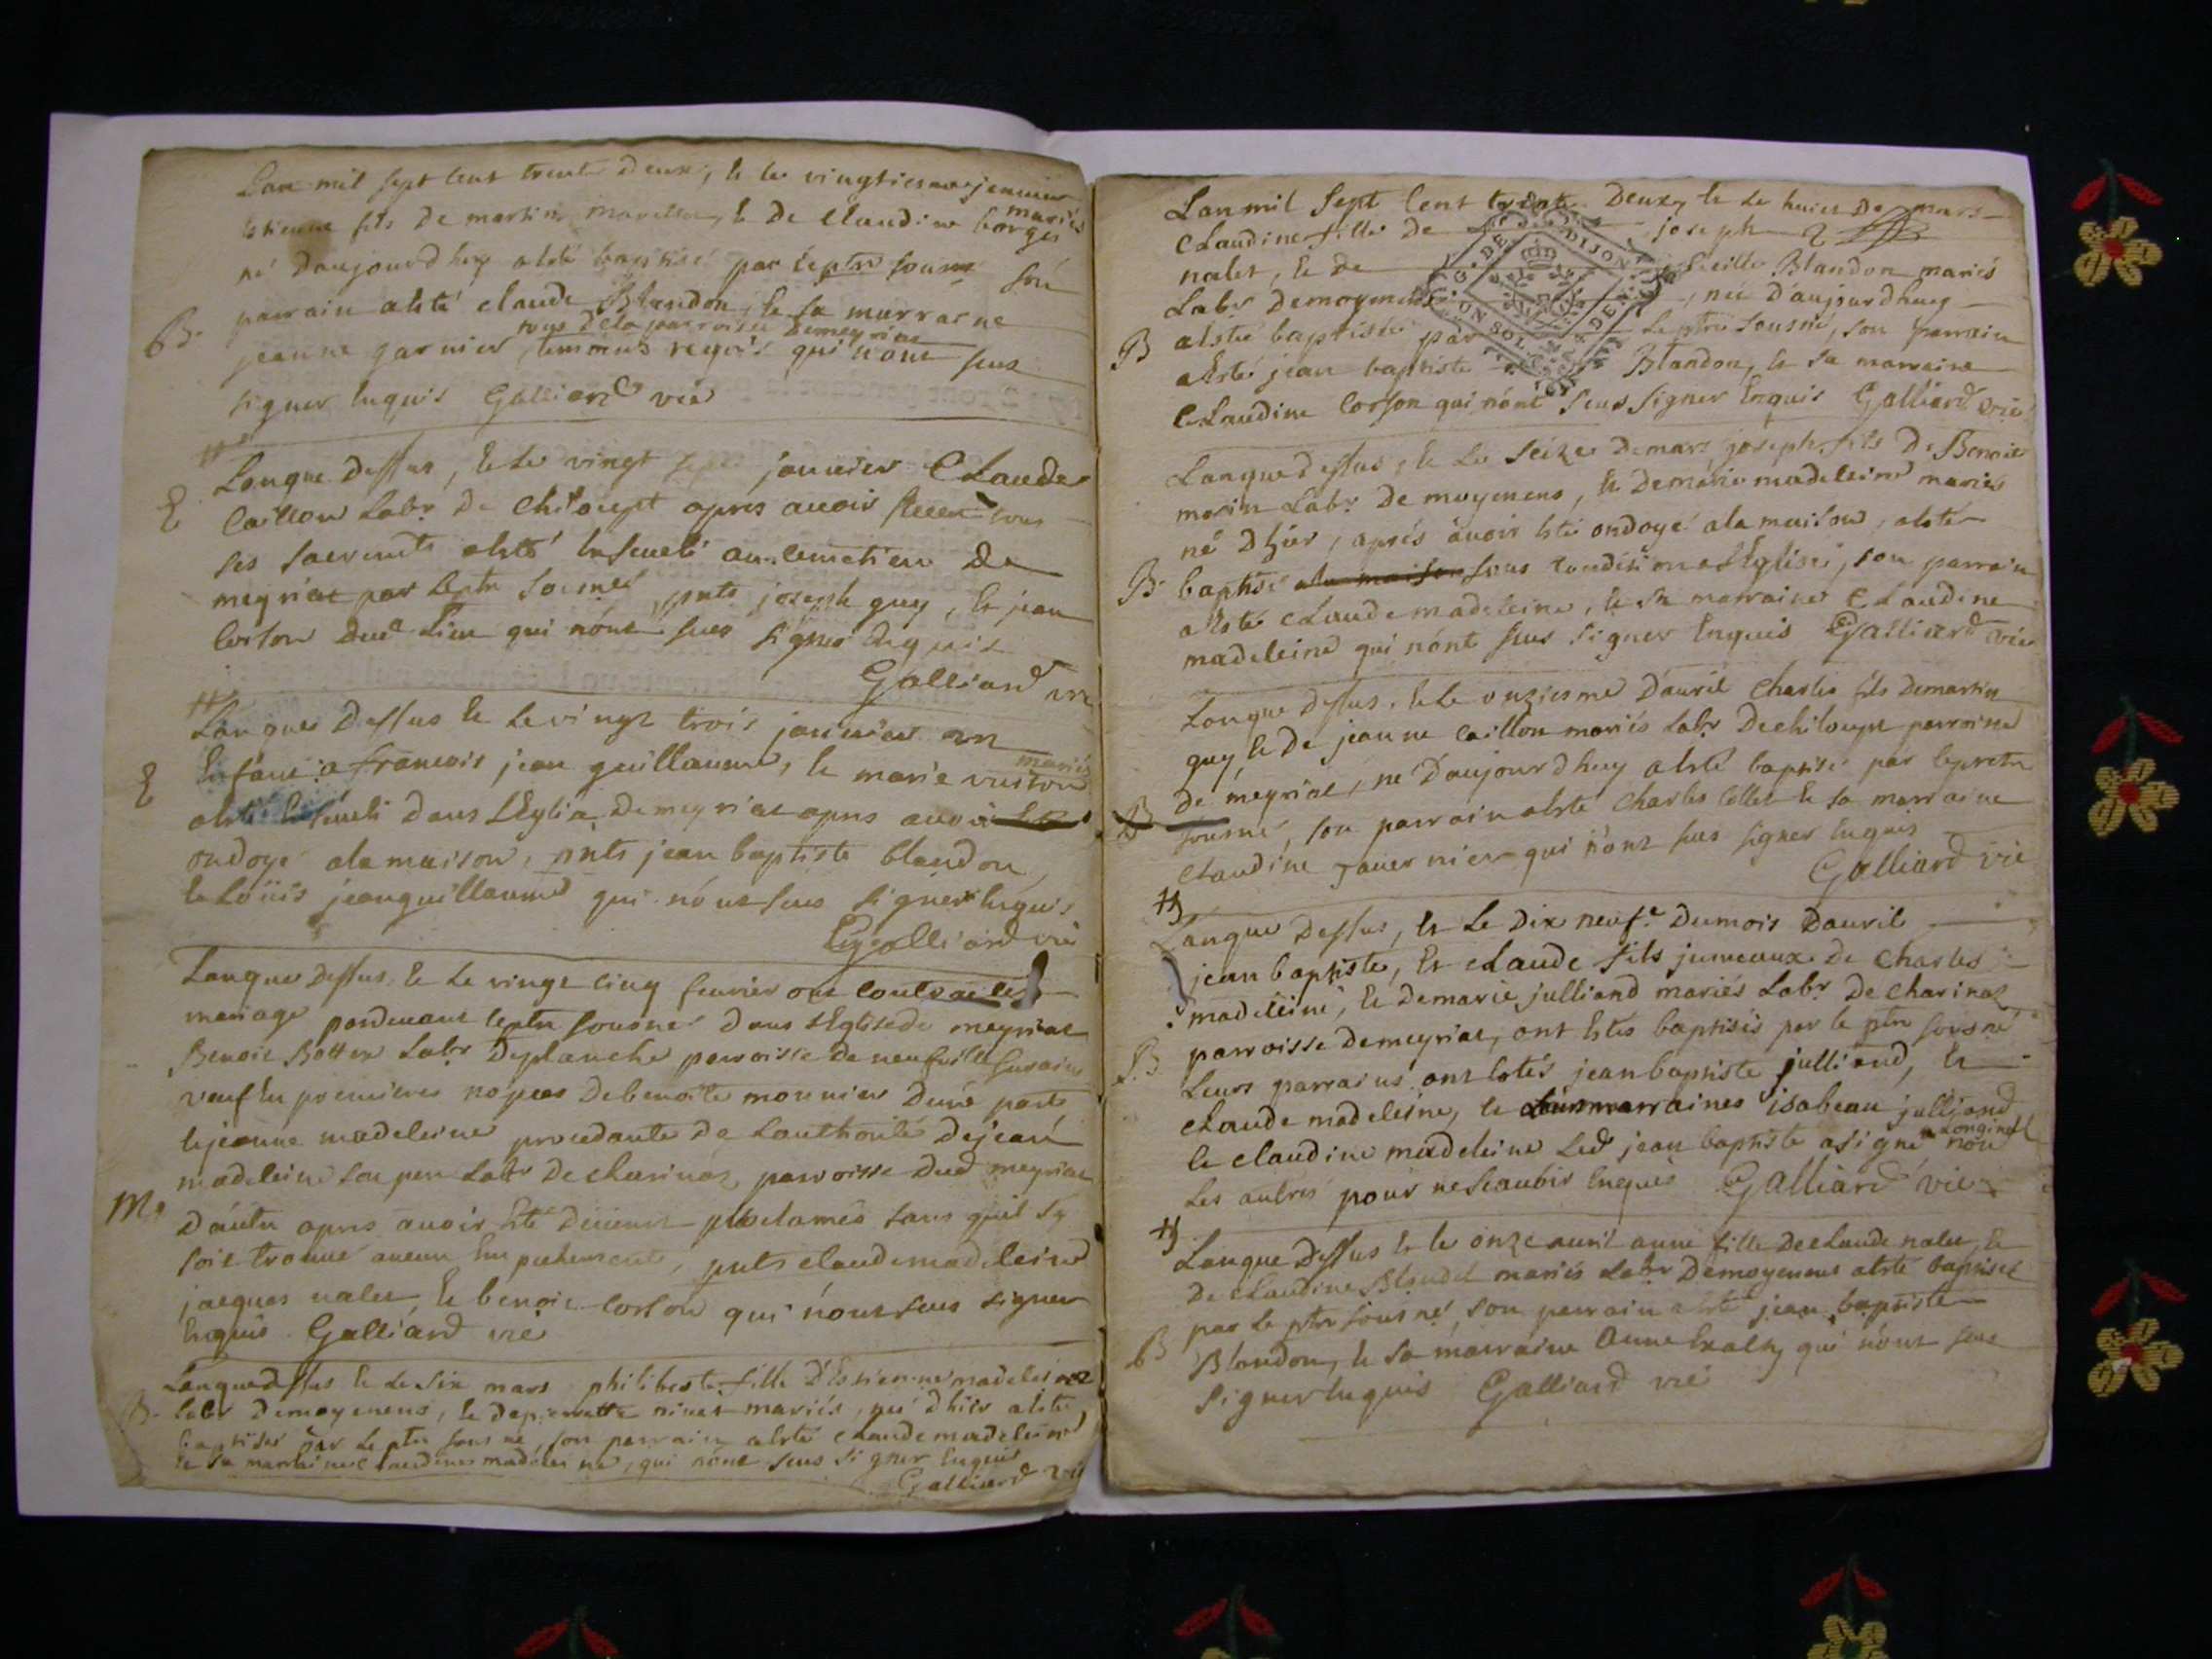 Lan mil sept cent trente deux, et le vingtiesme januier
estienne fils de martin et de claudine borges mariés
né daujourdhuy aesté baptisé par leptre sousné son
B. parrain aesté claude Blandon, et sa marraine
jeanne garnier, tous dela parroisse demeyriat temoins requis qui nont sceu
signer enquis Galliard vic
Lanque dessus, et le vingt sept januier Claude
E Caillon Labr de Chiloupt apres auoir receu tous
ses sacremts aesté enseueli au cemetiere de
meyriat par leptre sousné, pnts joseph guy, et jean
corson dud lieu qui nónt sceu signer enquis
Galliard vic
Lanque dessus et le vingt trois januier un
E enfant a francois jean guillaume, et marie vuiton mariés
aesté enseueli dans LEglise demeyriat apres auoir esté
ondoyé ala maison, pnts jean baptiste blandon
et Loüis jeanguillaume qui nónt sceu signer enquis
Galliard vic
Lanque dessus, et le vingt cinq feurier ont contracté
mariage pardeuant leptre sousné dans LEglise de meyriat
Benoit Labr Deplanche parroisse de neufuille surains
veuf en premieres nopces debenoite monnier dune part
et jeanne madeleine procedante de Lauthorité dejean
madeleine son pere Labr de charinaz parroisse dud meyriat
M. dáutre apres auoir esté deuement proclamés sans quil sy
soit trouué aucun empechement, pnts claude madeleine
jacques nalet, et benoit corson qui nónt sceu signer
enquis Galliard vic
Lanque dessus et le six mars philiberte fille destienne madeleine
B. labr demoyenens, et depierrette niuet mariés, née dhier aesté
baptisée par le ptre sousné, son parrain aesté claude madeleine
et sa marraine claudine madeleine, qui nónt sceu signer enquis
Galliard vic
Lanmil Sept Cent trente Deux, et le huict De mars
CLaudine fille De joseph
nalet, et De Blandon mariés
Labr Demoyenens, née D'aujourdhuy
B aestée baptisée par le ptre sousné, son parrain
aesté jean baptiste Blandon, et sa marraine
CLaudine Corson qui nónt sceu signer Enquis Galliard vic
Lanque dessus, et le seize demars joseph fils de Benoit
morin Labr De moyenens, et Demarie madeleine mariés
né Dhier, aprés áuoir esté ondoyé ala maison, aesté
B. baptisé ala maison sous condition a lEglise, son parrain
aesté CLaude madeleine, et sa marraine CLaudine
madeleine qui nónt sceu signer Enquis Galliard vic
Lanque dessus, et le onziesme Dauril Charles fils demartin
guy, et de jeanne Caillon mariés Labr Dechiloupt parroisse
B De meyriat, né Daujourdhuy aesté baptisé par lepretre
sousné, son parrain aesté Charles Collet et sa marraine
Claudine Tauernier qui nónt sceu signer enquis
Galliard vic
Lanque dessus, et Le Dix neufe Dumois Dauril
jean baptiste, et cLaude fils jumeaux de Charles
madeleine, et demarie julliand mariés Labr De charinaz
parroisse demeyriat, ont estés baptisés par le ptre sousné
B. Leurs parrains ont estés jeanbaptiste julliand, et
Claude madeleine, et Leurs marraines isabeau julliand
et claudine madeleine Led jean baptiste asigné a Loriginel non
Les autres pour nescauoir enquis Galliard vic
Lanque dessus et le onze auril anne fille declaude nalet, et
De claudine Blondel mariés Labr Demoyenens aesté baptisée
par Le ptre sousné, son parrain aesté jean baptiste
B Blandon, et sa marraine Anne qui nónt sceu
signer enquis Galliard vic